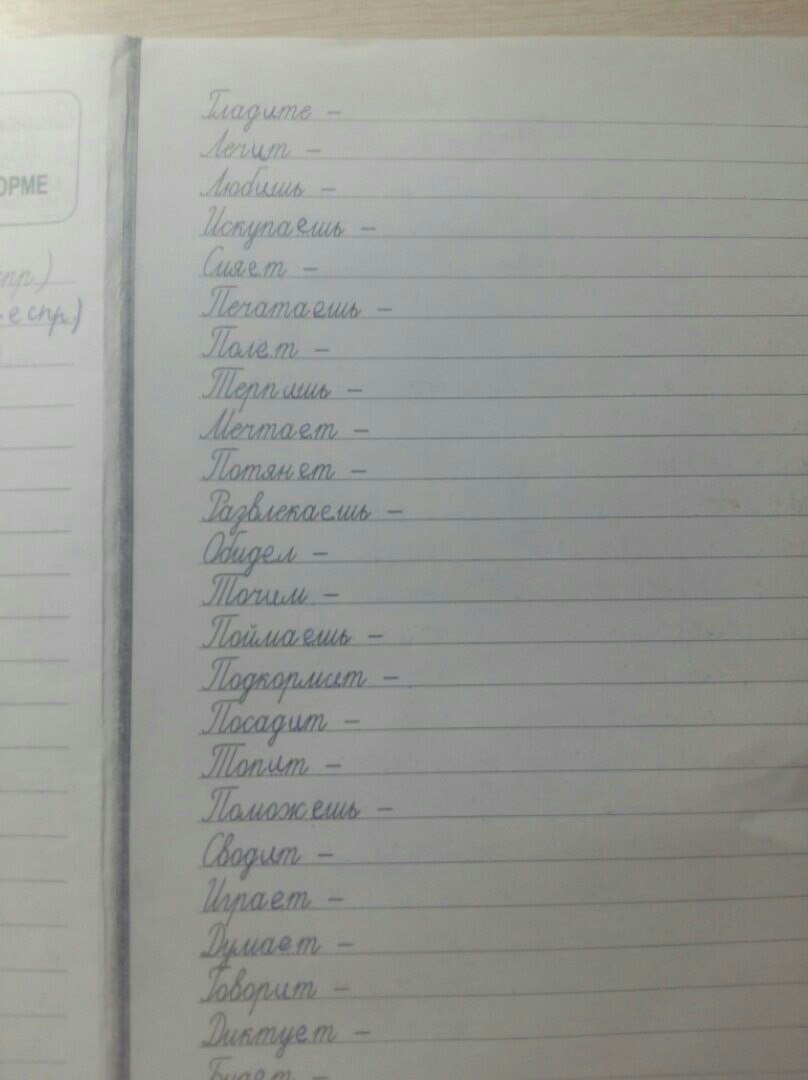 ОРМЕ
спр.)
-е спр.)
Гладите –
Лечит –
Любишь –
Искупаешь –
Сияет –
Печатаешь –
Полет –
Терпишь –
Мечтает –
Потянет –
Развлекаешь –
Обидел –
Точим –
Поймаешь –
Подкормит –
Посадит –
Топит –
Поможешь –
Сводит –
Играет –
Думает –
Говорит –
Диктует –
Будет –